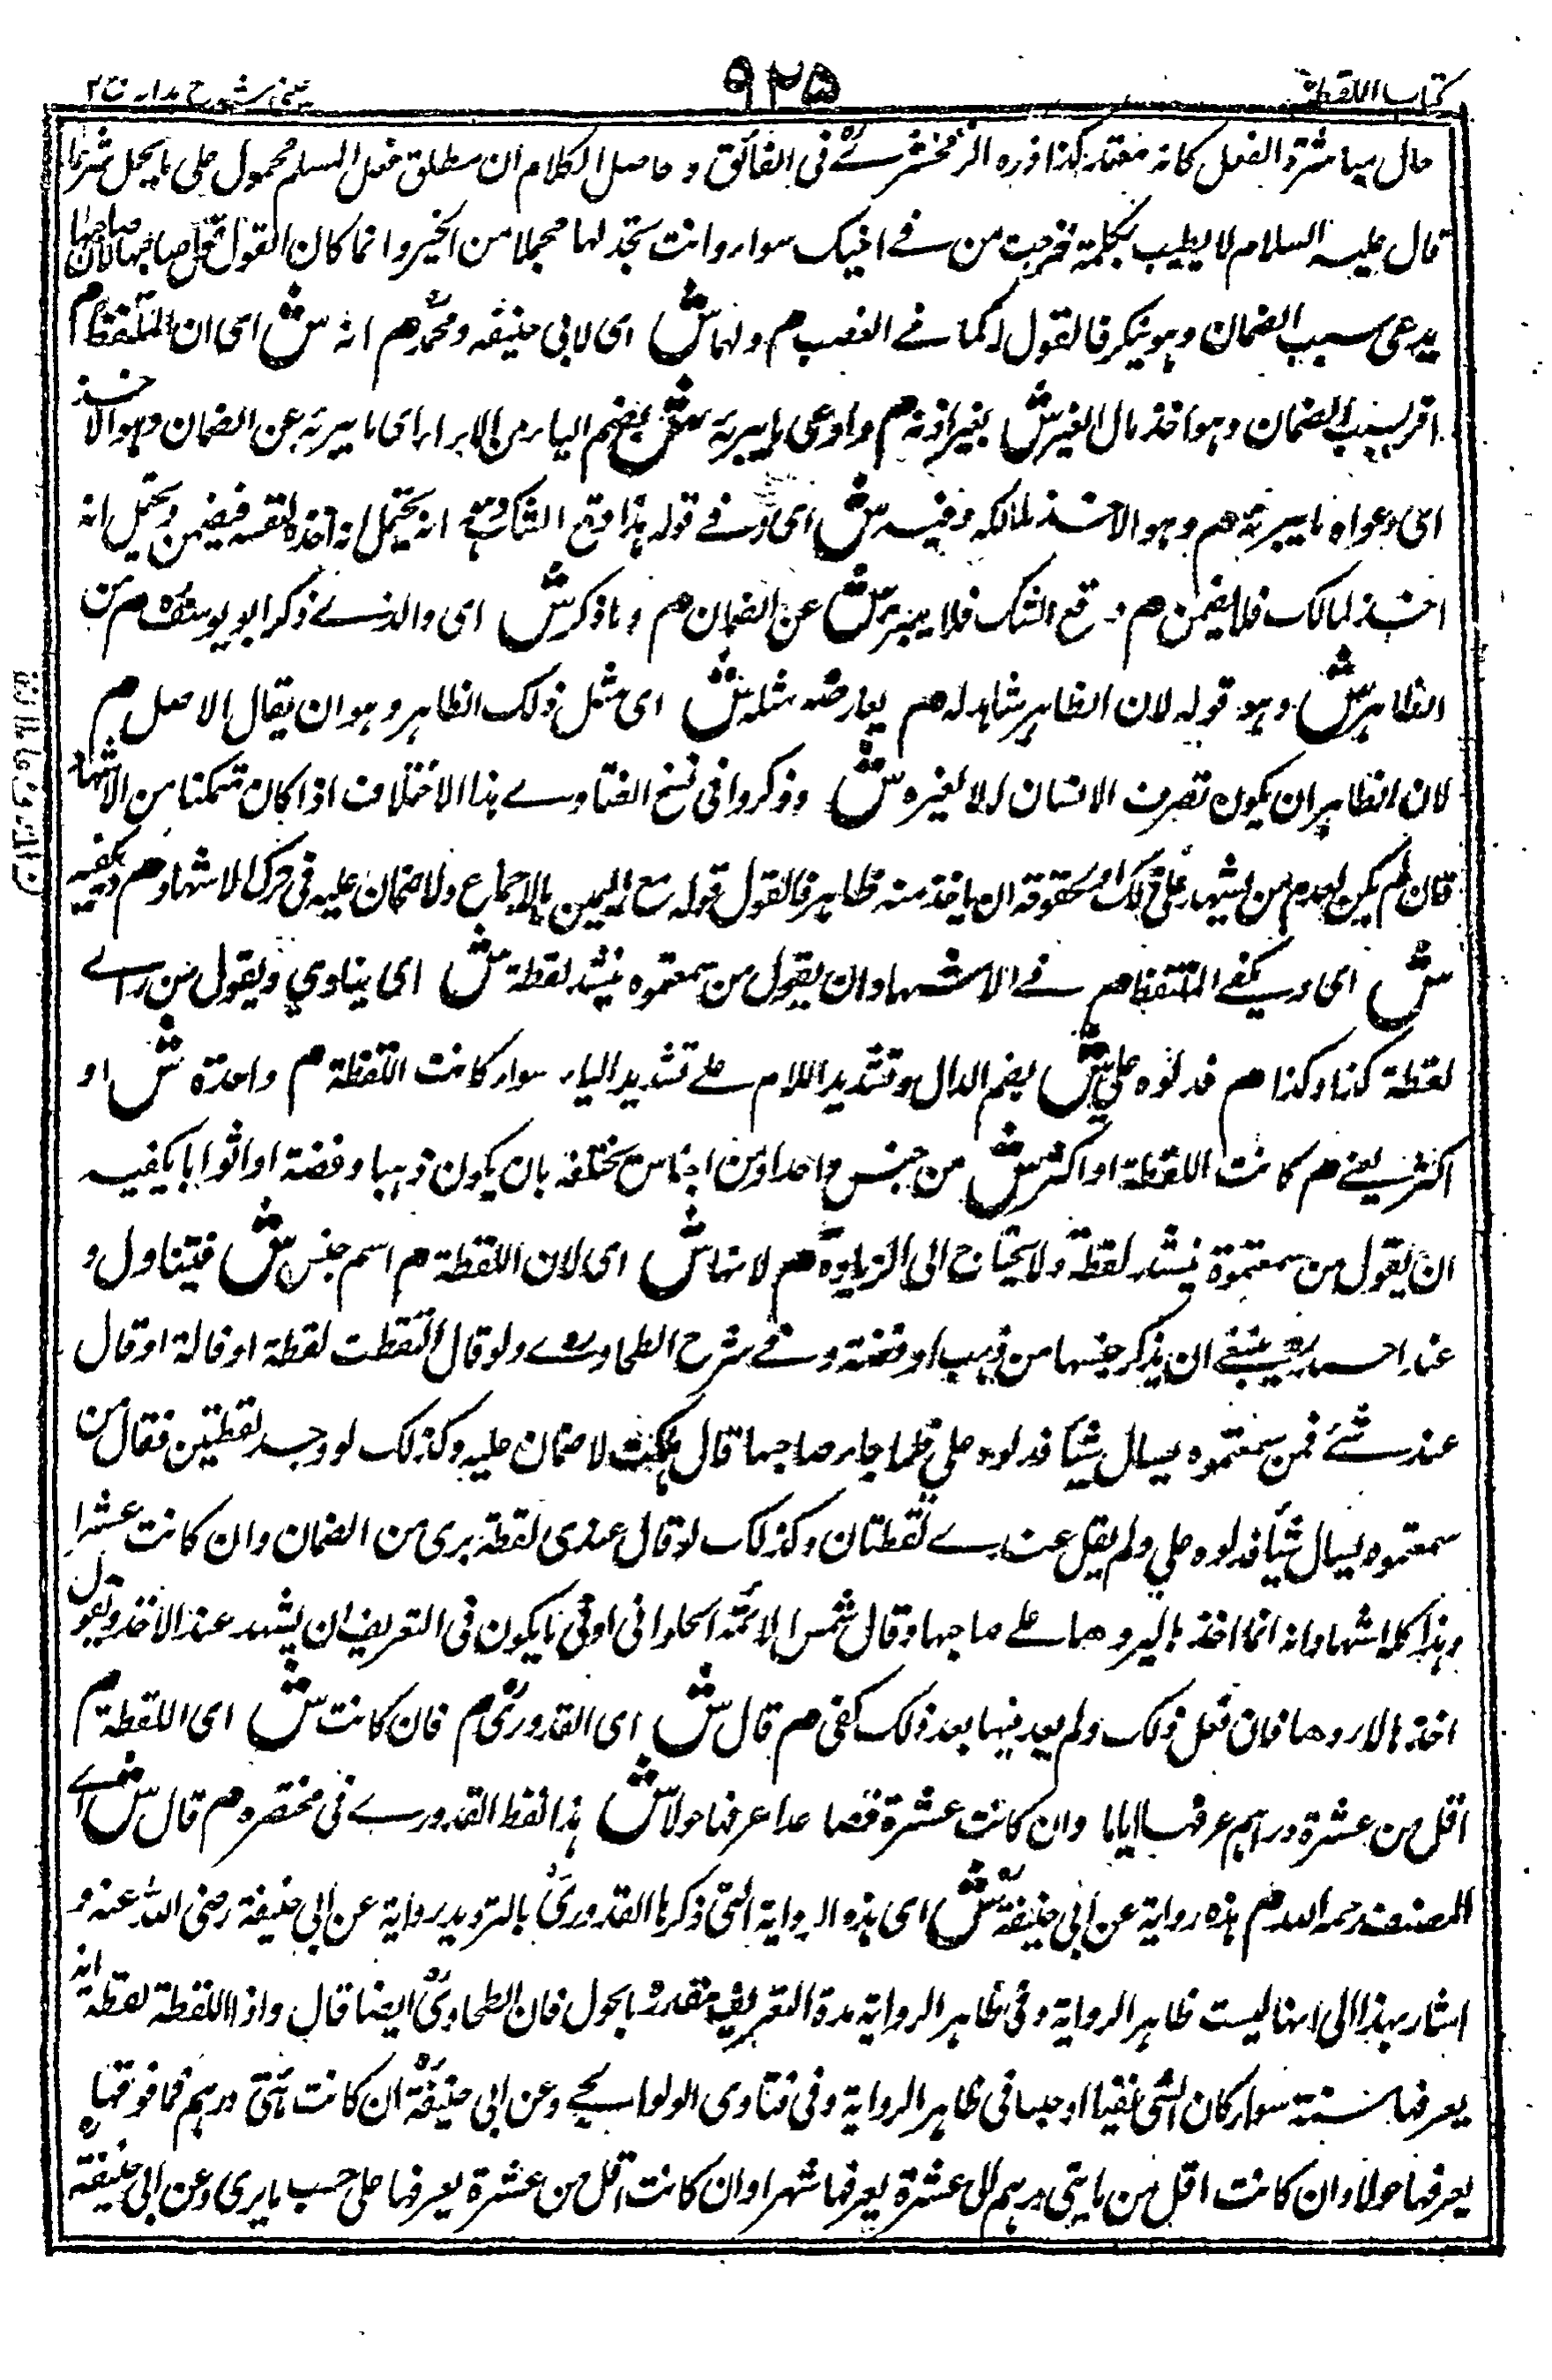 كتاب اللقطة
٩٢٥
عينى شرح هداية ج ٢
حال مباشرة الفعل كانه معتاد كذا اورده الزمخشرىؒ فى الفائق و حاصل الكلام ان مطلق فعل المسلم محمول على ما يحل شرعا
قال عليه السلام لا يطيب بكلمة خرجت من فى اخيك سوء وانت تجد لها محملا من الخير وانما كان القول قول صاحبها لان صاحبها
يدعى سبب الضمان وهو ينكر فالقول له كما فى الغصب م ولهما ش اى لابى حنيفه ومحمدؒ هم انه ش اى ان الملتقط م
اقر بسبب الضمان وهو اخذ مال الغير ش بغير اذنه م وادعى ما يبريه ش بضم الياء من الابراء اى ما يبريه عن الضمان وهو الاخذ
اى دعواه ما يبريه هم وهو الاخذ لمالكه وفيه ش اى و فى قوله هذا وقع الشك انه يحتمل انه اخذه لنفسه فيضمن ويحتمل انه
اخذ لمالك فلا يضمن هم وقع الشك فلا يبرء ش عن الضمان هم وما ذكر ش اى والذى ذكر ابو يوسفؒ هم من
الظاهر ش وهو قوله لان الظاهر شاهد له هم يعارضه مثله ش اى مثل ذلك الظاهر وهو ان يقال الاصل م
لان الظاهر ان يكون تصرف الانسان له لا لغيره ش وذكروا فى نسخ الفتاوى هذا الاختلاف اذا كان متمكنا من الاشهاد
فان لم يكن لعدم من يشهد على ذلك او لحقوقه ان ياخذ منه ظالم فالقول قوله مع اليمين بالاجماع ولا ضمان عليه فى ترك الاشهاد هم ويكفيه
ش اى ويكفى الملتقط هم فى الاشهاد ان يقول من سمعتموه ينشد لقطة ش اى ينادي ويقول من راى
لقطة كذا وكذا هم فدلوه علي ش بضم الدال وتشديد اللام على تشديد الياء سواء كانت اللقطة م واحدة ش او
اكثر يعنى هم كانت اللقطة او اكثر ش من جنس واحد او من اجناس مختلفه بان يكون ذهبا وفضة او اثوابا يكفيه
ان يقول من سمعتموه ينشد لقطة ولا يحتاج الى الزيادة هم لانها ش اى لان اللقطة م اسم جنس ش فيتناول و
عند احمد ينبغى ان يذكر جنسها من ذهب او فضة و فى شرح الطحاوى ولو قال التقطت لقطة او ضالة او قال
عندى شئ فمن سمعتموه يسال شيئا فدلوه علي فلما جاء صاحبها قال هلكت لا ضمان عليه وكذلك لو وجد لقطتين فقال من
سمعتموه يسال شيئا فدلوه علي ولم يقل عندى لقطتان وكذلك لو قال عندى لقطة برى من الضمان وان كانت عشرا
وهذا كله اشهاد انه انما اخذها ليردها على صاحبها وقال شمس الائمة الحلوانى ادنى ما يكون فى التعريف ان يشهد عند الاخذ ويقول
اخذتها لاردها فان فعل ذلك ولم يعد فيها بعد ذلك كفى هم قال ش اى القدورىؒ م فان كانت ش اى اللقطة م
اقل من عشرة دراهم عرفها اياما وان كانت عشرة فصاعدا عرفها حولا ش هذا لفظ القدورى فى مختصره م قال ش اى
المصنف رحمه الله م هذه رواية عن ابى حنيفةؒ ش اى هذه الرواية التى ذكرها القدورىؒ بالترديد رواية عن ابى حنيفة رضى الله عنه و
اشار بهذا الى انها ليست ظاهر الرواية وفى ظاهر الرواية مدة التعريف مقدرة بالحول فان الطحاوىؒ ايضا قال واذا اللقطة لقطة انه
يعرفها سنة سواء كان الشئ نفيسا او خسيسا فى ظاهر الرواية وفى فتاوى الولوالجى وعن ابى حنيفةؒ ان كانت مأتى درهم فما فوقها
يعرفها حولا وان كانت اقل من مايتى درهم الى عشرة يعرفها شهرا وان كانت اقل من عشرة يعرفها على حسب ما يرى وعن ابى حنيفةؒ